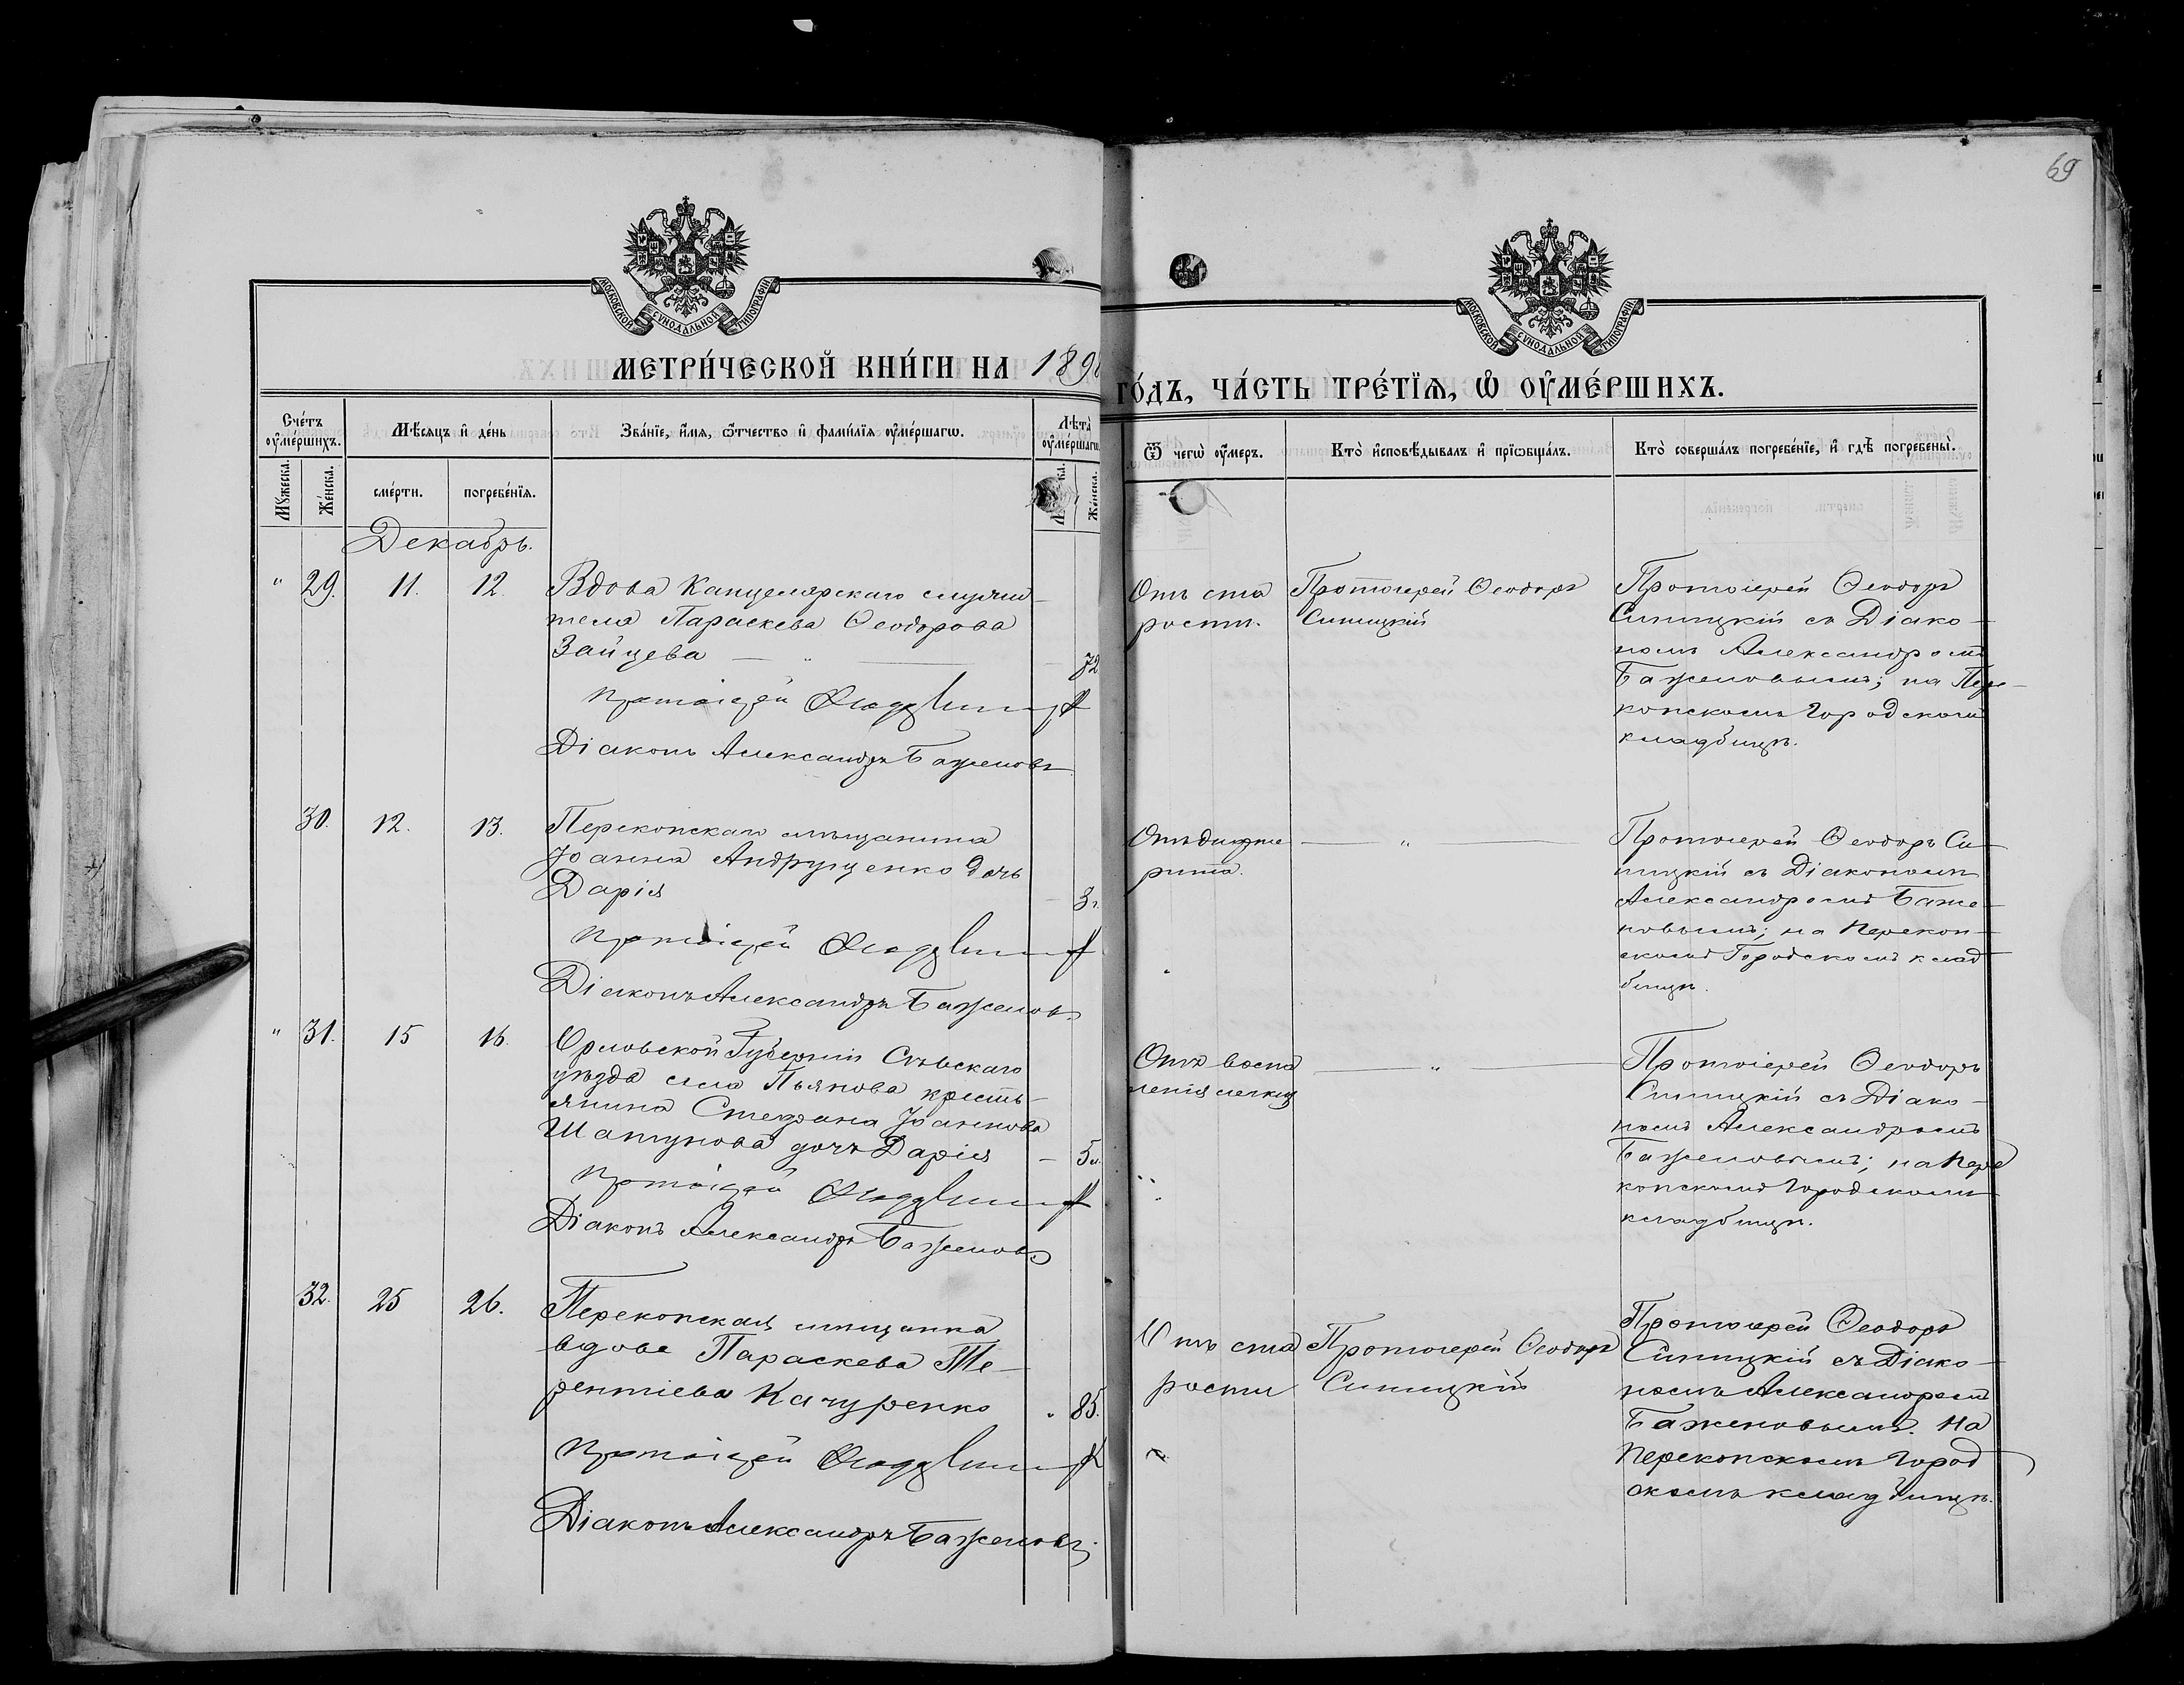 69
МОСКОВСКОЙ СѴНОДАЛЬНОЙ ТИПОГРАФІИ
МОСКОВСКОЙ СѴНОДАЛЬНОЙ ТИПОГРАФІИ
МЕТРИ́ЧЕСКОЙ КНИ́ГИ НА 189
ГО́ДЪ, ЧА́СТЬ ТРЕ́ТЇЯ, Ѡ҆ ОУ҆МЕ́РШИХЪ.
Сче́тъ оу҆ме́ршихъ.
Мѣ́сяцъ и҆ де́нь
Зва́нїе, и҆́мя, ѻ҆́тчество и҆ фами́лїя оу҆ме́ршагѡ.
Лѣ́та оу҆ме́ршагѡ
Ѿ чегѡ̀ оу҆́меръ.
Кто̀ и҆сповѣ́дывалъ и҆ прїѡбща́лъ.
Кто̀ соверша́лъ погребе́нїе, и҆ гдѣ̀ погребены̀.
Мꙋ́жеска.
Же́нска.
сме́рти.
погребе́нїя.
Же́нска.
Декабрь.
" 29. 11. 12.
Вдова Канцелярскаго служи-
теля Параскева Ѳеодорова
Зайцева — " — 72
Протоіерей
Діаконъ Александръ Баженовъ
Отъ ста
рости.
Протоіерей Ѳеодоръ
Синицкій
Протоіерей Ѳеодоръ
Синицкій съ Діако-
номъ Александромъ
Баженовымъ; на Пере-
копскомъ Городскомъ
кладбищѣ.
30. 12. 13.
Перекопскаго мѣщанина
Іоанна Андрущенко дочь
Дарія — 3.
Протоіерей
Діаконъ Александръ Баженовъ
Отъ дифте
рита.
— " —
Протоіерей Ѳеодоръ Си-
ницкій съ Діакономъ
Александромъ Баже-
новымъ; на Перекоп-
скомъ Городскомъ клад
бищѣ.
" 31. 15 16.
Орловской Губерніи Сѣвскаго
уѣзда села Пьянова кресть-
янина Стефана Іоаннова
Шатунова дочь Дарія — 5м.
Протоіерей
Діаконъ Александръ Баженовъ
Отъ воспа
ленія легкихъ
— " —
Протоіерей Ѳеодоръ
Синицкій съ Діако-
номъ Александромъ
Баженовымъ; на Пере
копскомъ Городскомъ
кладбищѣ.
32. 25 26.
Перекопская мѣщанка
вдова Параскева Те-
рентіева Качуренко " 85.
Протоіерей
Діаконъ Александръ Баженовъ.
Отъ ста
рости
Протоіерей Ѳеодоръ
Синицкій
Протоіерей Ѳеодоръ
Синицкій съ Діако-
номъ Александромъ
Баженовымъ. На
Перекопскомъ Город
скомъ кладбищѣ.